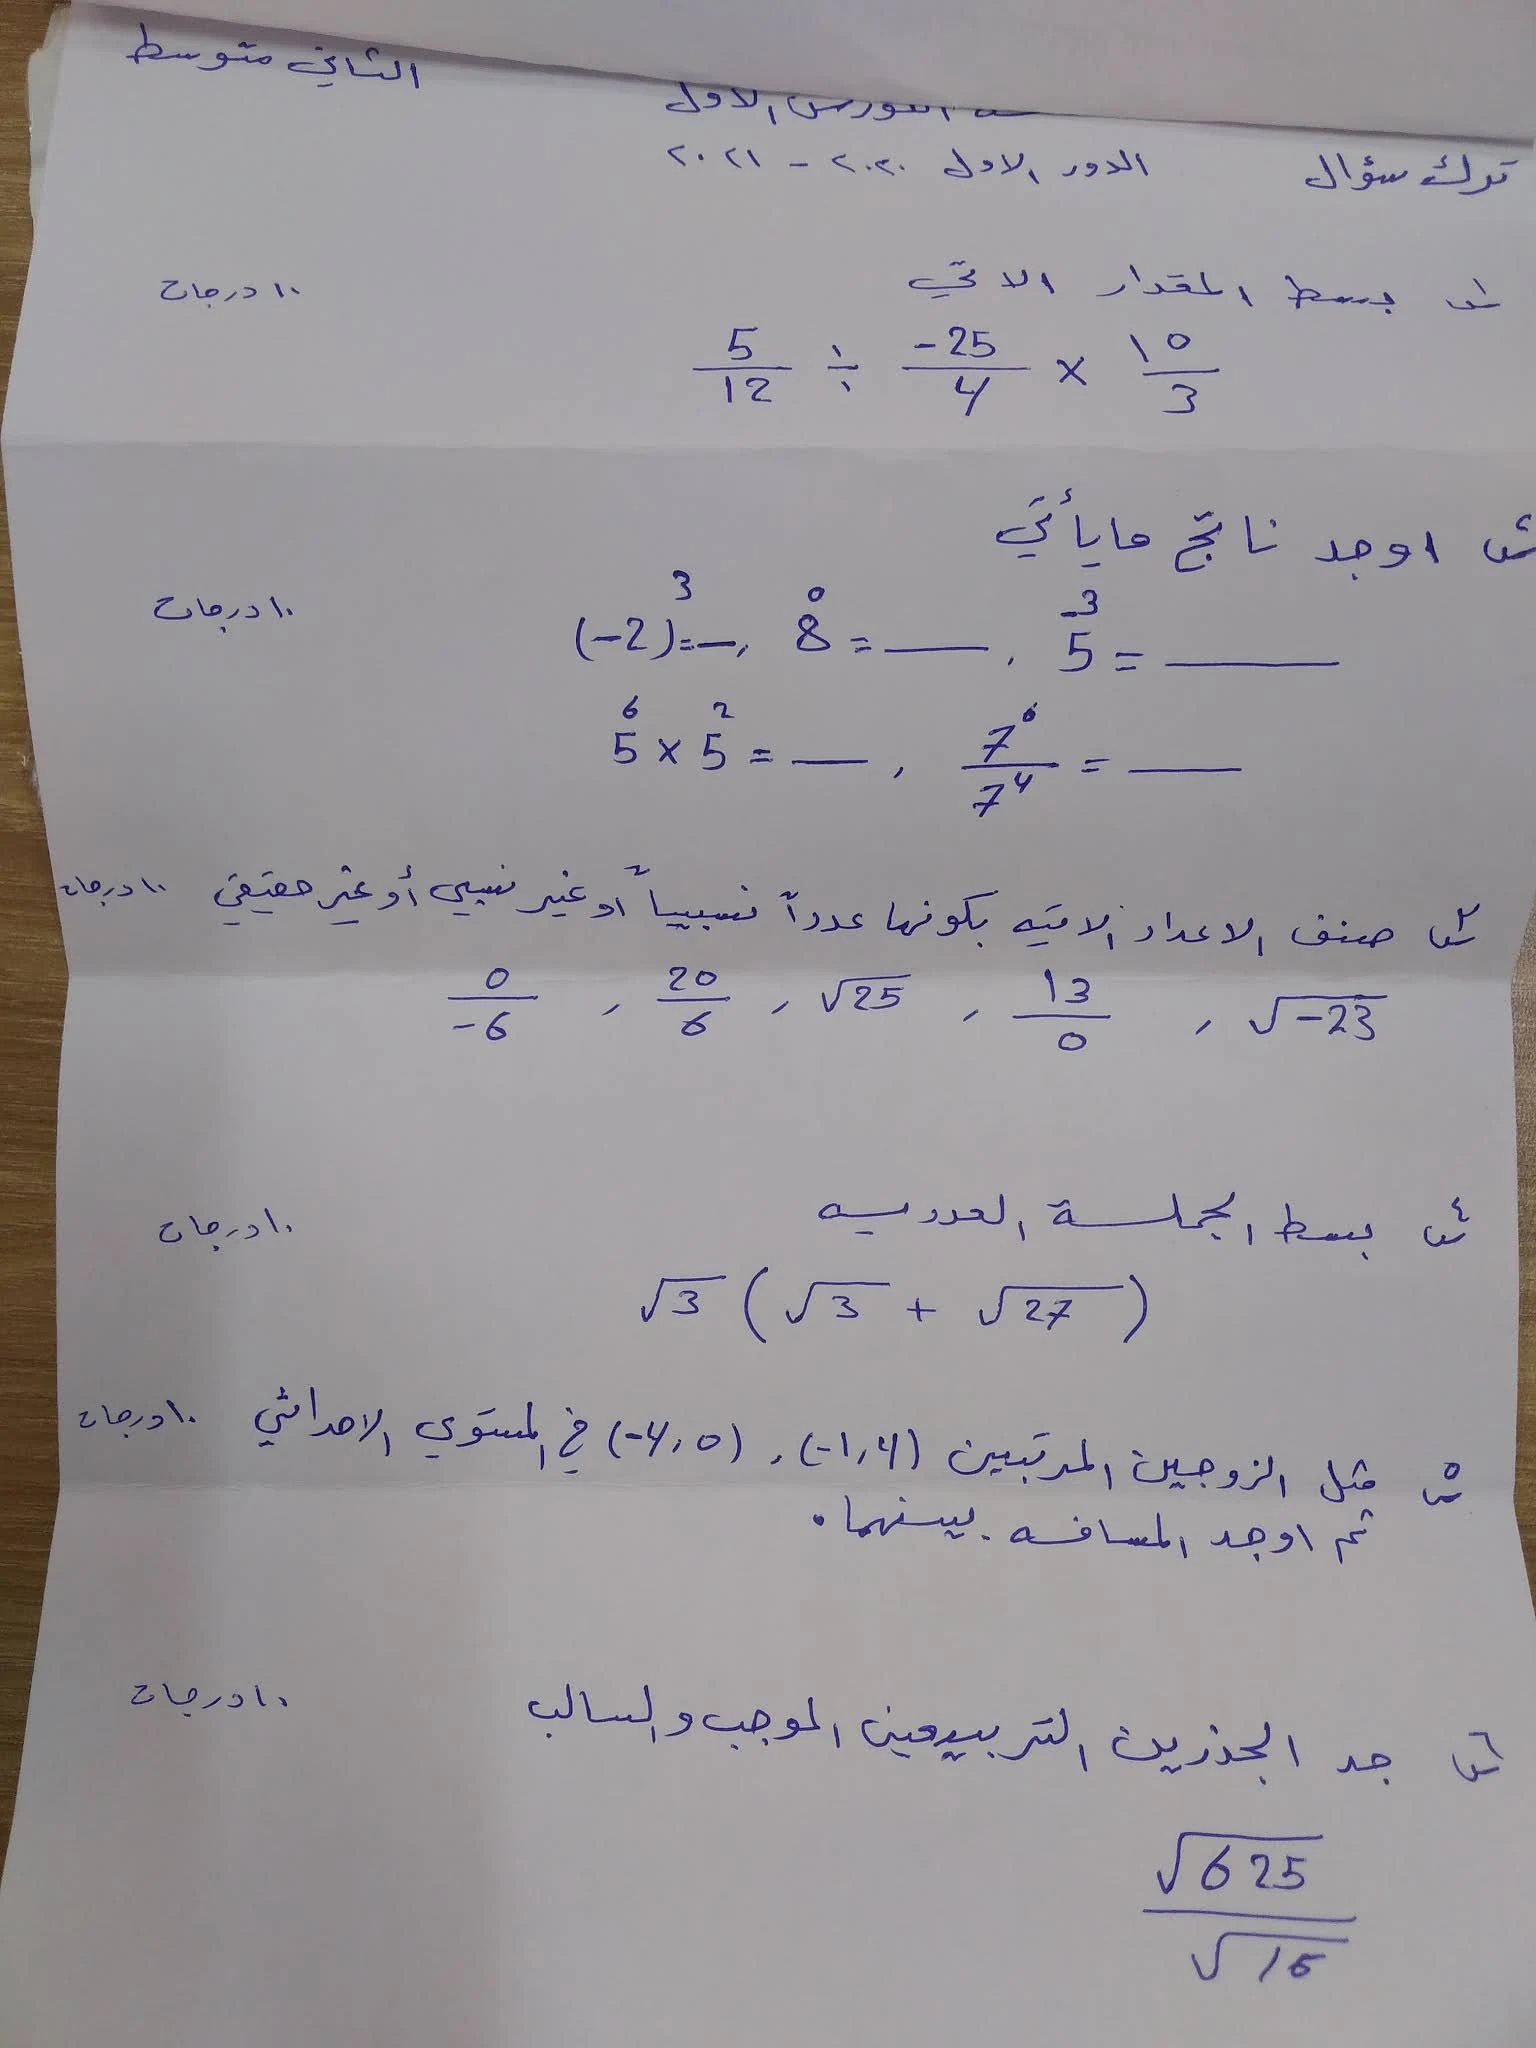 الثاني متوسط
الكورس الاول
ترك سؤال
الدور الاول ٢٠٢٠ - ٢٠٢١
س١ بسط المقدار الاتي ١٠ درجات
5/12 ÷ -25/4 × 10/3
س٢ اوجد ناتج مايأتي
(-2)³=—, 8⁰=——, 5⁻³=——— ١٠ درجات
5⁶ × 5² = ——, 7⁶/7⁴ = ——
س٣ صنف الاعداد الاتيه بكونها عدداً نسبياً او غير نسبي أو غير حقيقي ١٠ درجات
0/-6 , 20/6 , √25 , 13/0 , √-23
س٤ بسط الجملة العدديه ١٠ درجات
√3 (√3 + √27)
س٥ مثل الزوجين المرتبين (-1,4) , (-4,0) في المستوي الاحداثي ١٠ درجات
ثم اوجد المسافه بينهما.
س٦ جد الجذرين التربيعين الموجب والسالب ١٠ درجات
√625/√16